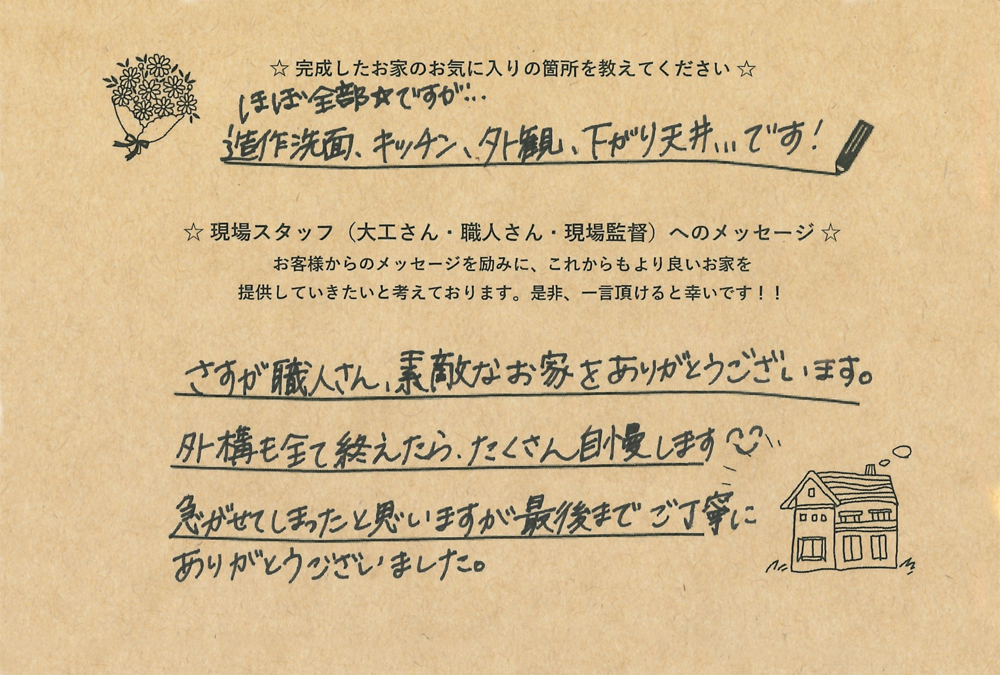 ☆ 完成したお家のお気に入りの箇所を教えてください ☆
ほぼ全部★ですが...
造作洗面、キッチン、外観、下がり天井...です!
☆ 現場スタッフ（大工さん・職人さん・現場監督）へのメッセージ ☆
お客様からのメッセージを励みに、これからもより良いお家を
提供していきたいと考えております。是非、一言頂けると幸いです！！
さすが職人さん、素敵なお家をありがとうございます。
外構も全て終えたら、たくさん自慢します
急がせてしまったと思いますが最後までご丁寧に
ありがとうございました。